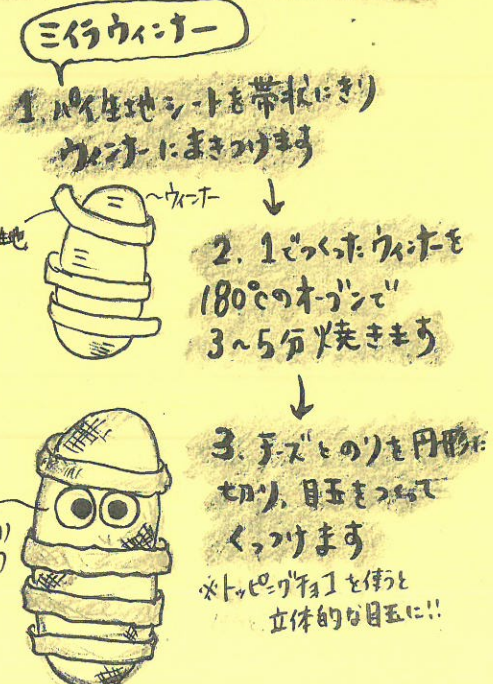 ミイラウィンナー
1. パイ生地シートを帯状にきり
ウィンナーにまきつけます
〜ウィンナー
生地
2. 1でつくったウィンナーを
180℃のオーブンで
3〜5分焼きます
3. チーズとのりを円形に
切り、目玉をつくって
くっつけます
※トッピングチョコを使うと
立体的な目玉に!!